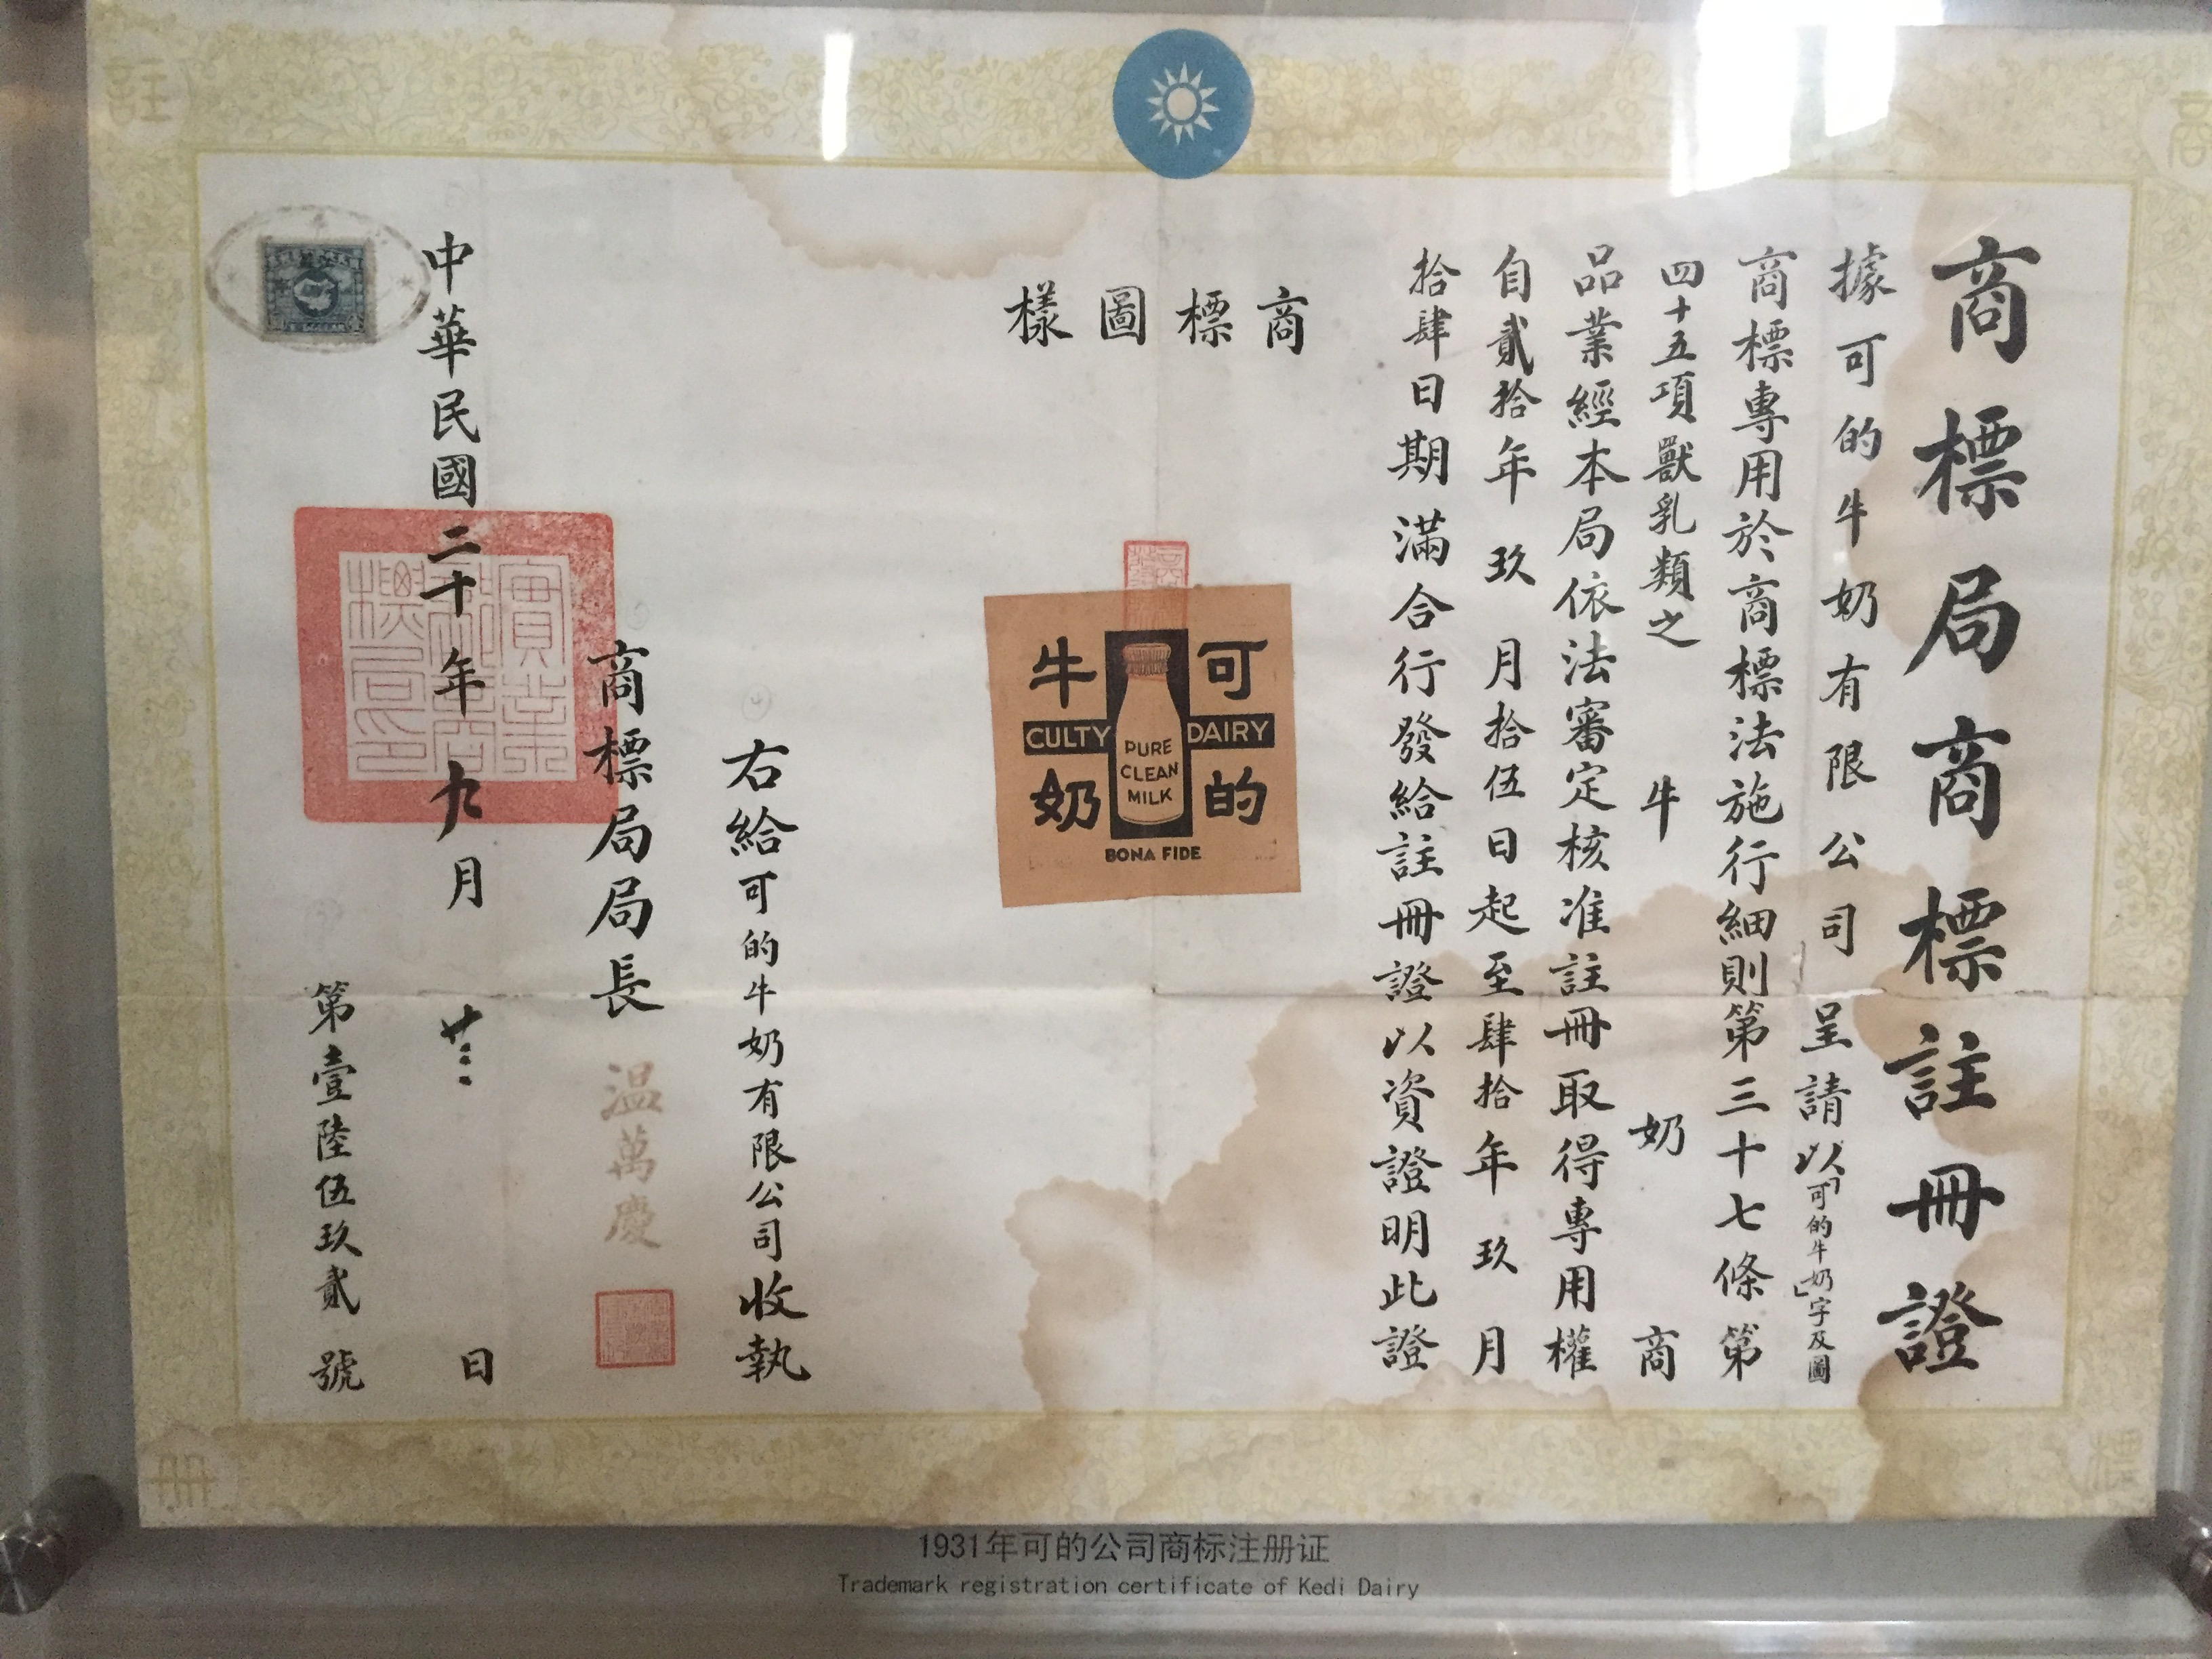 商標局商標註冊證
據可的牛奶有限公司 呈請以「可的牛奶」字及圖
商標專用於商標法施行細則第三十七條第
四十五項獸乳類之 牛 奶 商
品業經本局依法審定核准註冊取得專用權
自貳拾年玖月拾伍日起至肆拾年玖月
拾肆日期滿合行發給註冊證以資證明此證
商標圖樣
可的
牛奶
CULTY DAIRY
PURE
CLEAN
MILK
BONA FIDE
右給可的牛奶有限公司收執
商標局局長 温萬慶
中華民國二十年九月 日
第壹陸伍玖貳號
商
標
註
冊
1931年可的公司商标注册证
Trademark registration certificate of Kedi Dairy